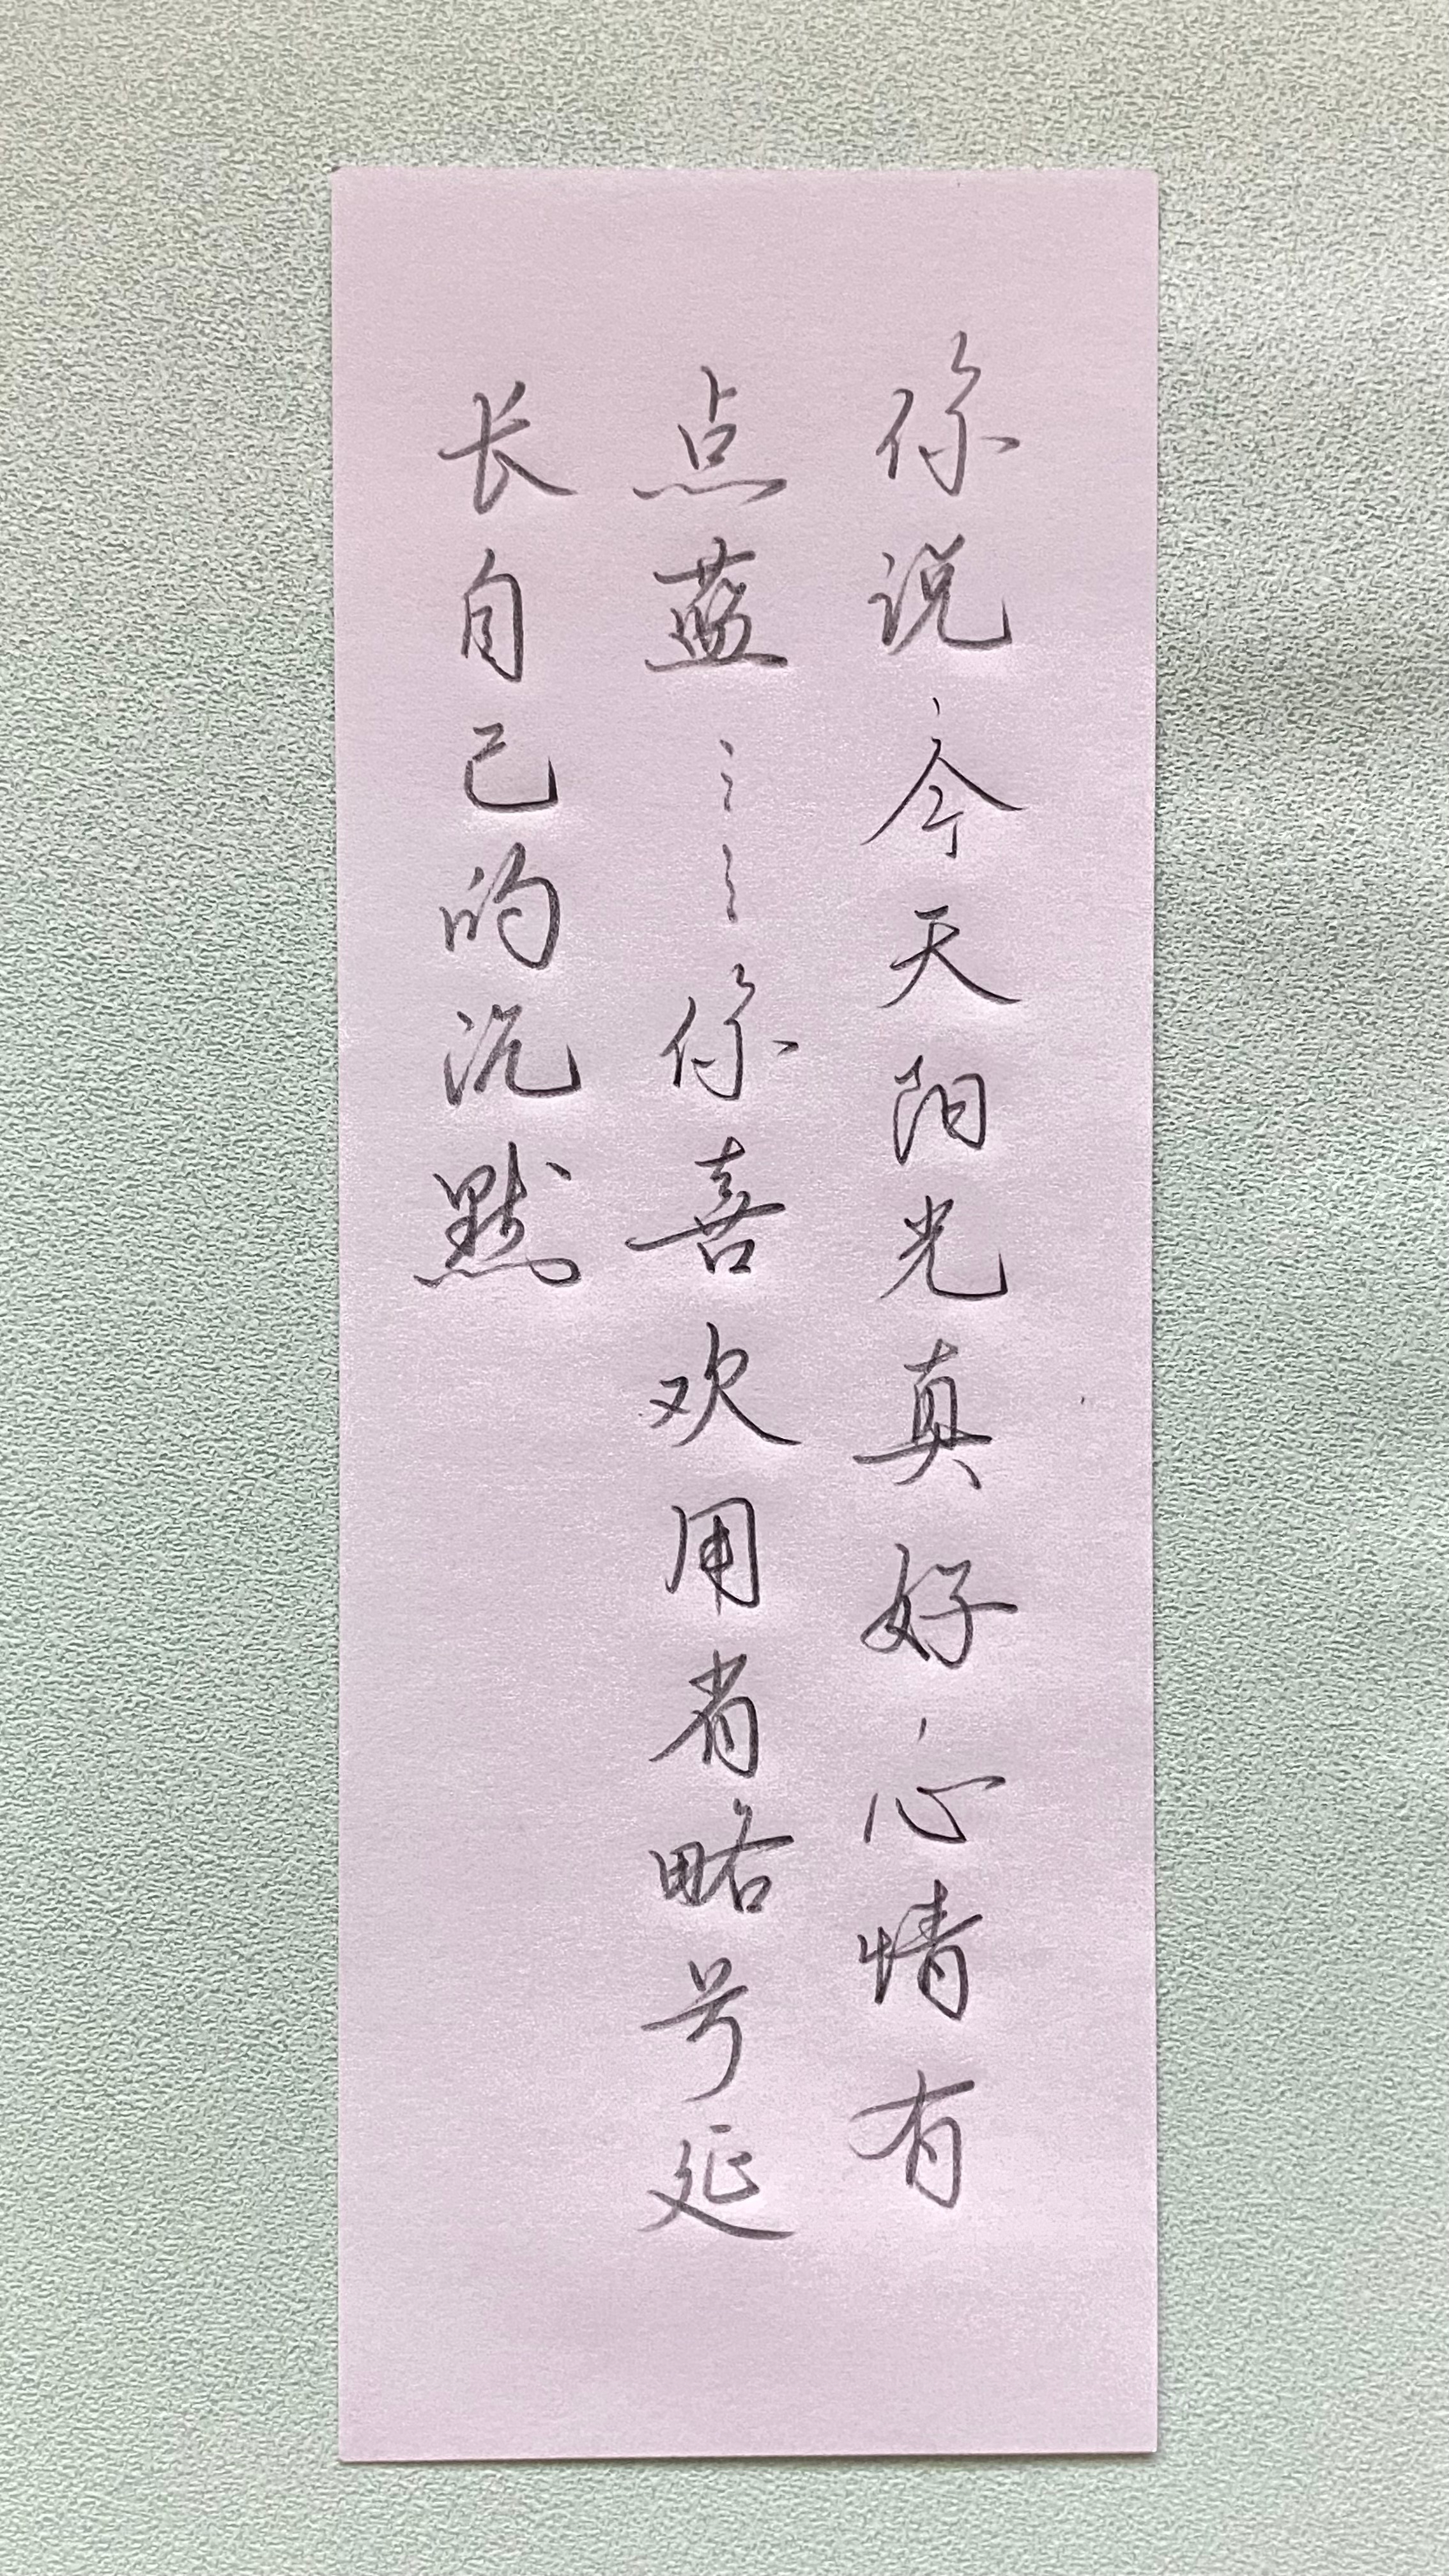 你说，今天阳光真好，心情有
点蓝……你喜欢用省略号延
长自己的沉默